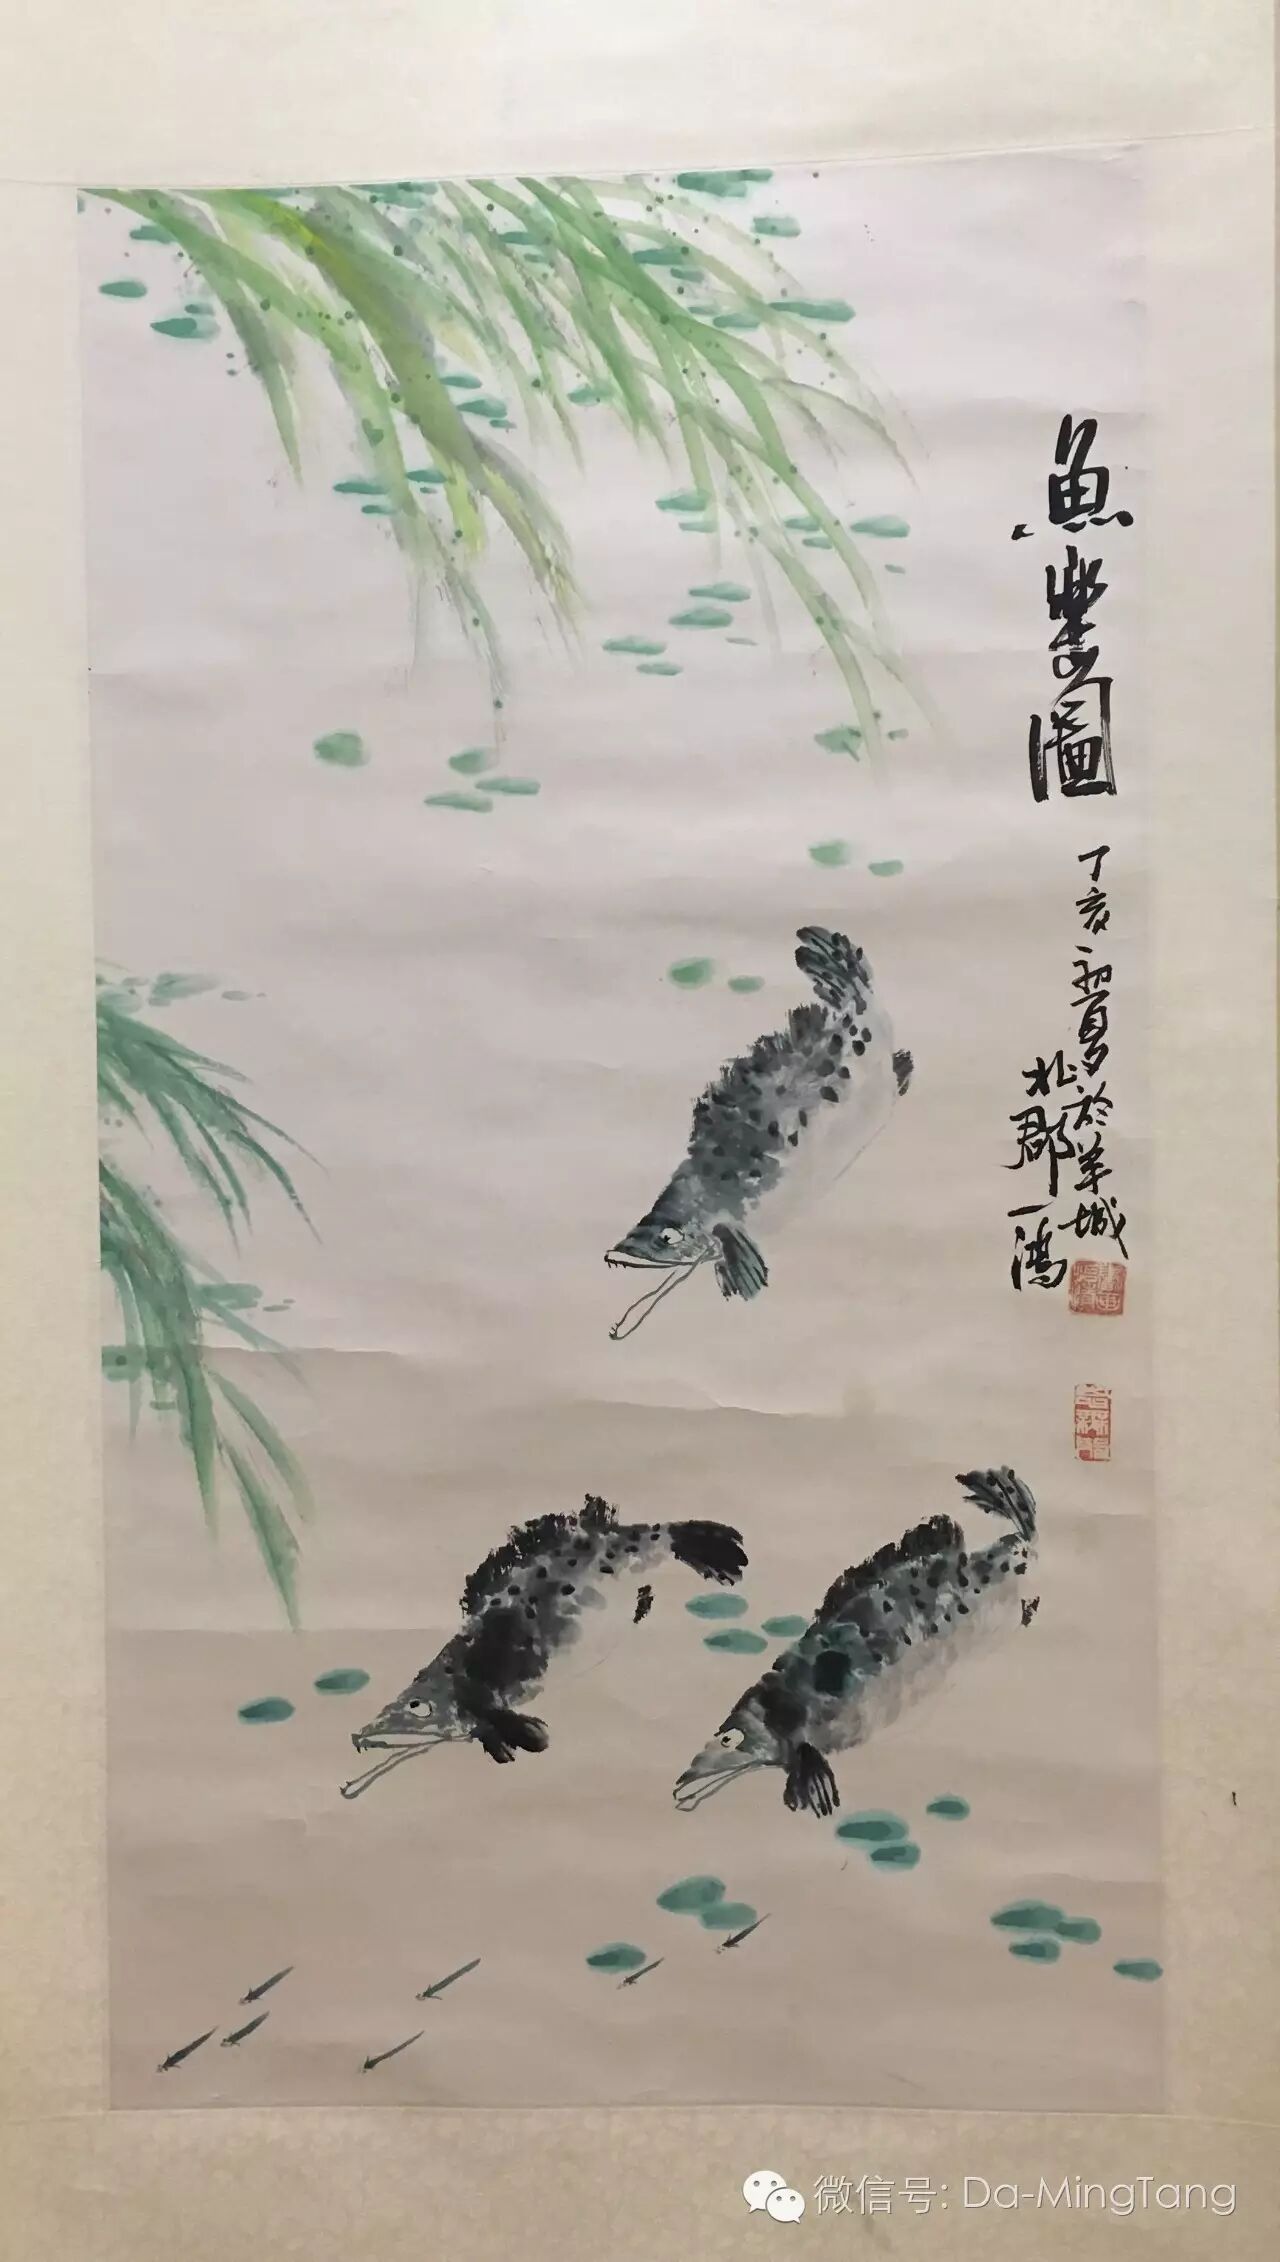 魚樂圖
丁亥初夏於羊城
郡一鴻
微信号: Da-MingTang